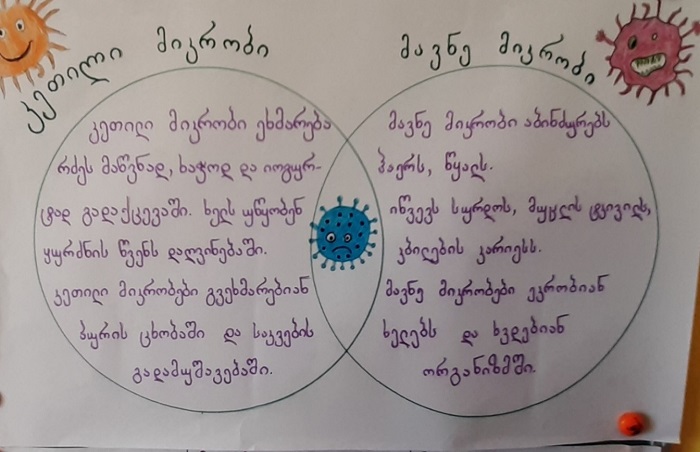 კეთილი მიკრობი
მავნე მიკრობი
კეთილი მიკრობი ეხმარება
რძეს მაწვნად, ხაჭოდ და იოგურ-
ტად გადაქცევაში. ხელს უწყობენ
ყურძნის წვენს დაღვინებაში.
კეთილი მიკრობები გვეხმარებიან
პურის ცხობაში და საკვების
გადამუშავებაში.
მავნე მიკრობი აბინძურებს
ჰაერს, წყალს.
იწვევს სურდოს, მუცლის ტკივილს,
კბილების კარიესს.
მავნე მიკრობები ეკრობიან
ხელებს და ხვდებიან
ორგანიზმში.